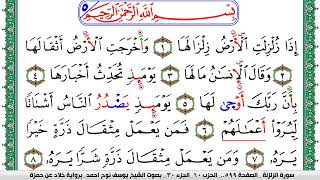 بِسْمِ اللَّهِ الرَّحْمَٰنِ الرَّحِيمِ
إِذَا زُلْزِلَتِ الْأَرْضُ زِلْزَالَهَا ١ وَأَخْرَجَتِ الْأَرْضُ أَثْقَالَهَا
٢ وَقَالَ الْإِنسَانُ مَا لَهَا ٣ يَوْمَئِذٍ تُحَدِّثُ أَخْبَارَهَا ٤
بِأَنَّ رَبَّكَ أَوْحَىٰ لَهَا ٥ يَوْمَئِذٍ يَصْدُرُ النَّاسُ أَشْتَاتًا
لِّيُرَوْا أَعْمَالَهُمْ ٦ فَمَن يَعْمَلْ مِثْقَالَ ذَرَّةٍ خَيْرًا
يَرَهُ ٧ وَمَن يَعْمَلْ مِثْقَالَ ذَرَّةٍ شَرًّا يَرَهُ ٨
سورة الزلزلة . الصفحة ٥٩٩ . الحزب ٦٠ الجزء ٣٠ . بصوت الشيخ يوسف نوح احمد برواية خلاد عن حمزة